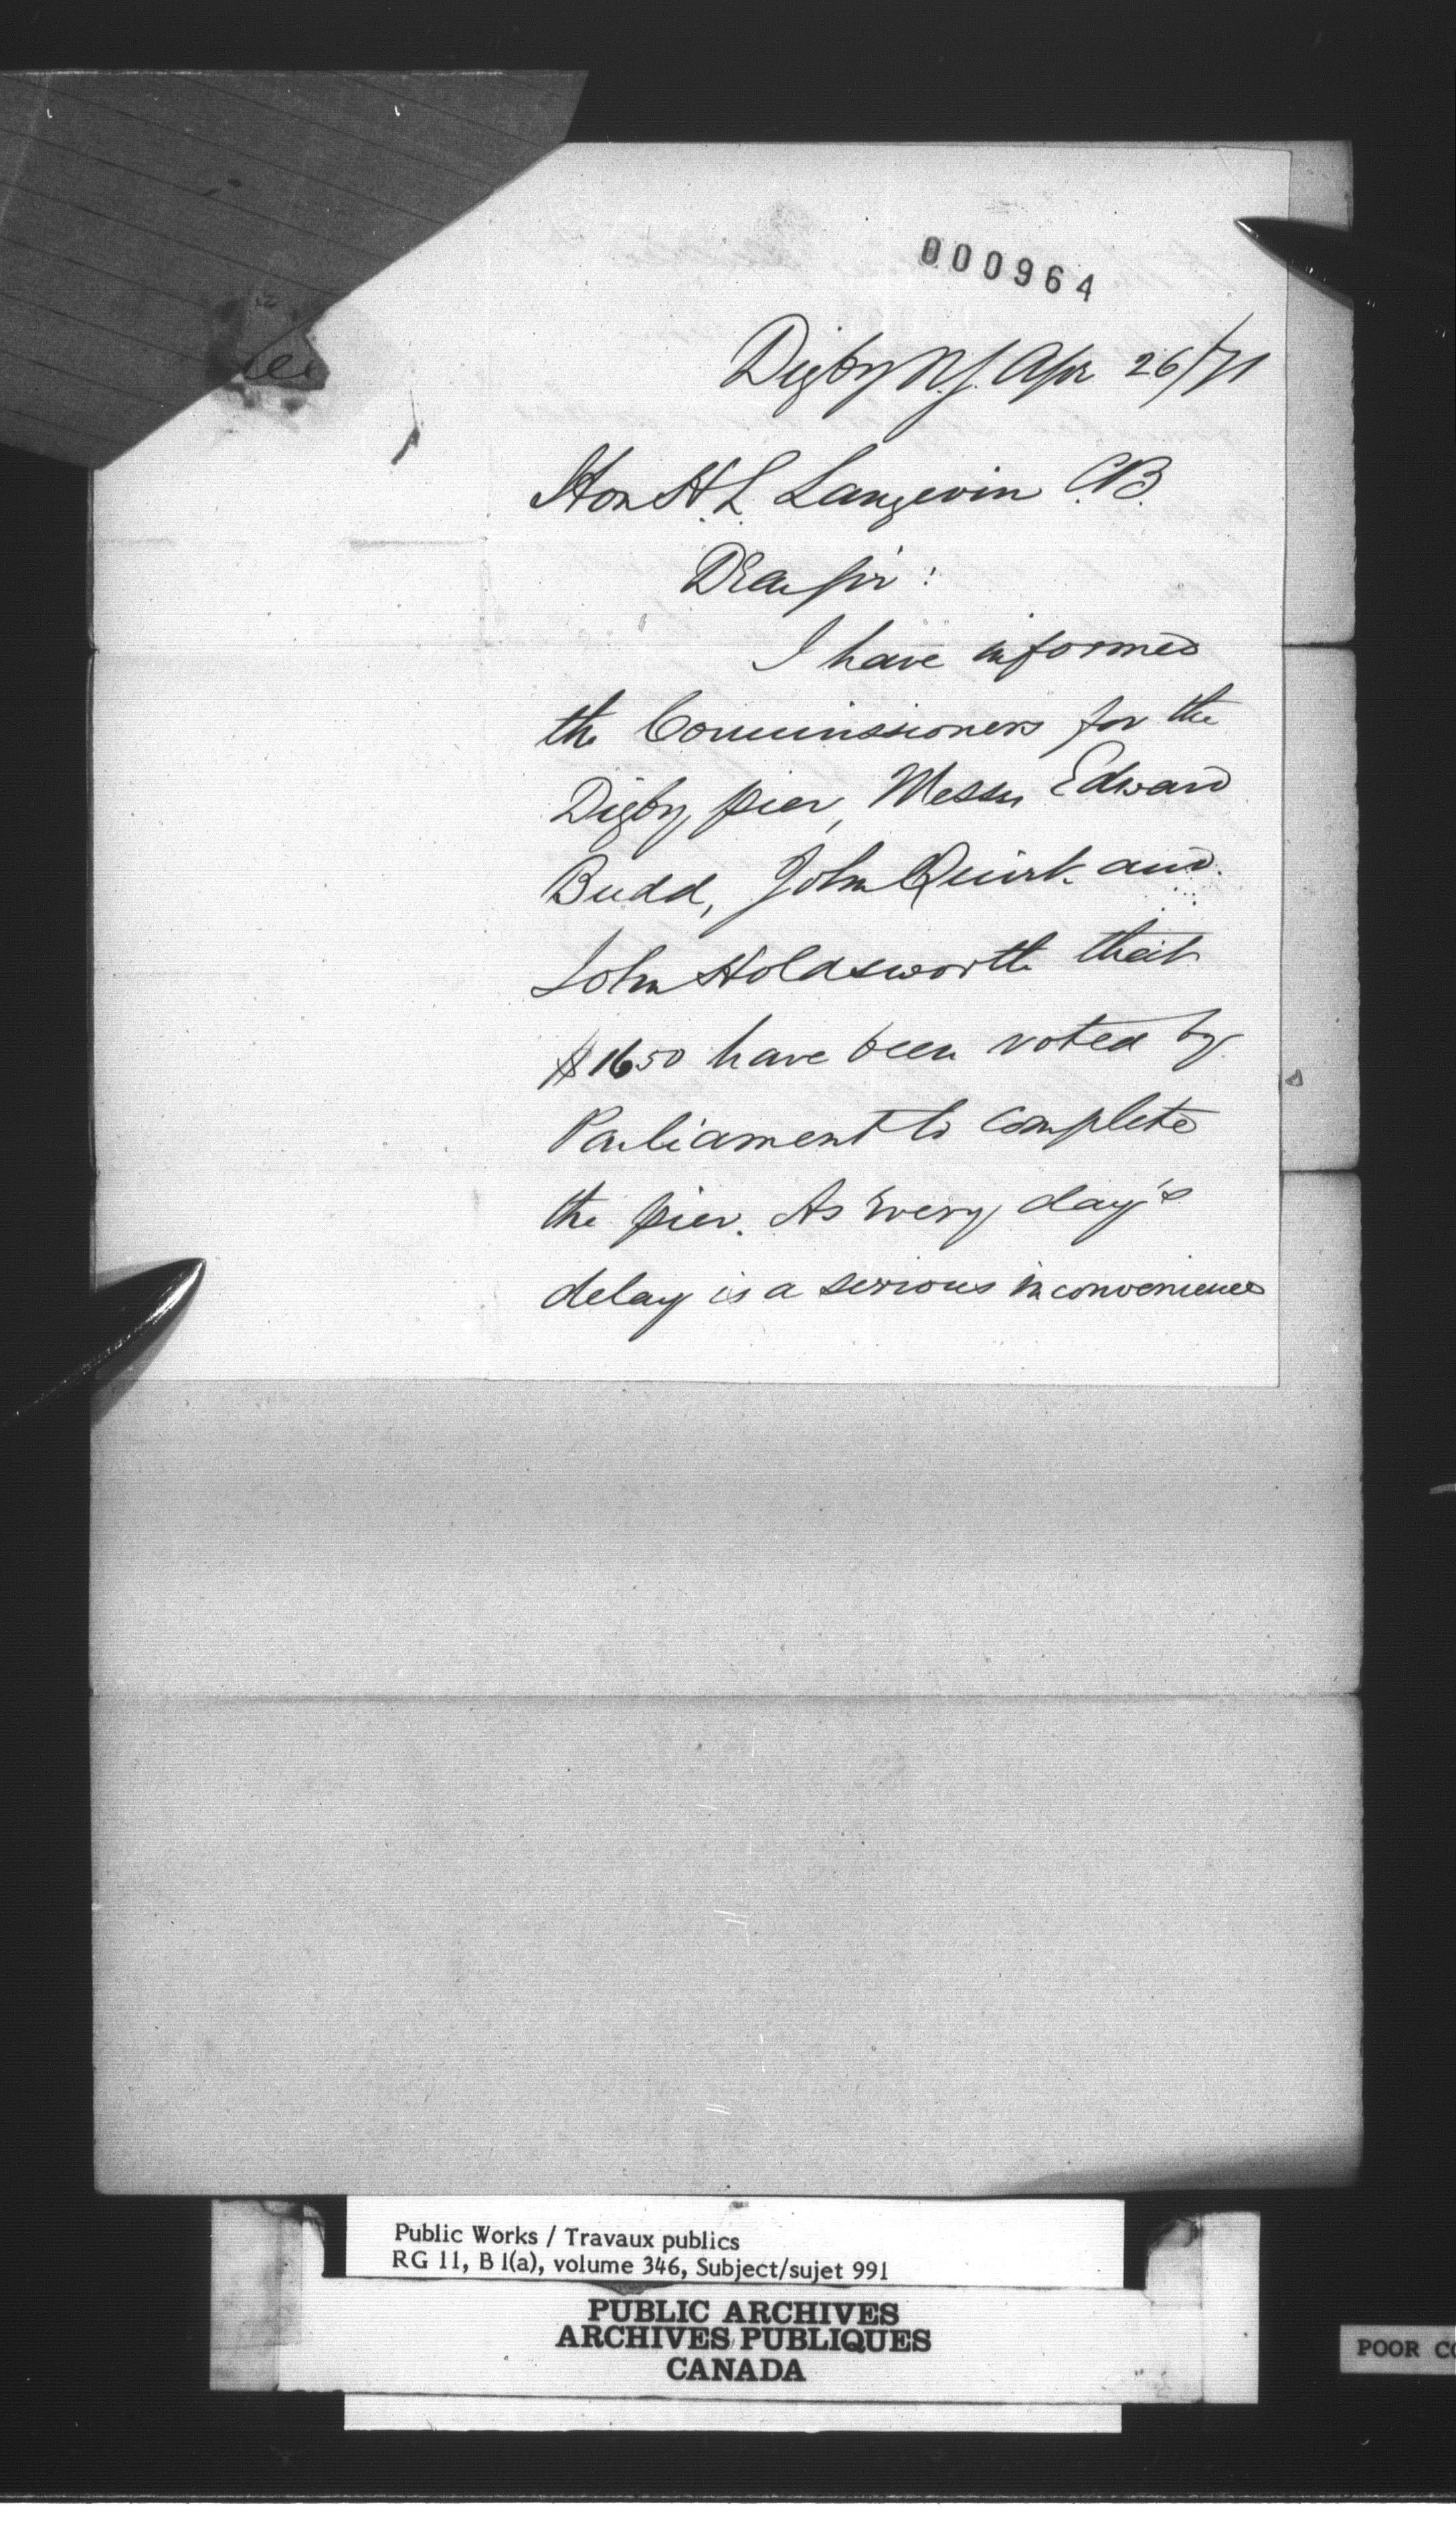 000964
Digby N.S. Apr 26/71
Hon H.L. Langevin C.B.
Dear Sir:
I have informed
the Commissioners for the
Digby pier, Messrs Edward
Budd, John Quirk and
John Holdsworth that
$1650 have been voted by
Parliament to complete
the pier. As every day's
delay is a serious inconvenience
Public Works / Travaux publics
RG 11, B 1(a), volume 346, Subject/sujet 991
PUBLIC ARCHIVES
ARCHIVES PUBLIQUES
CANADA
POOR CO